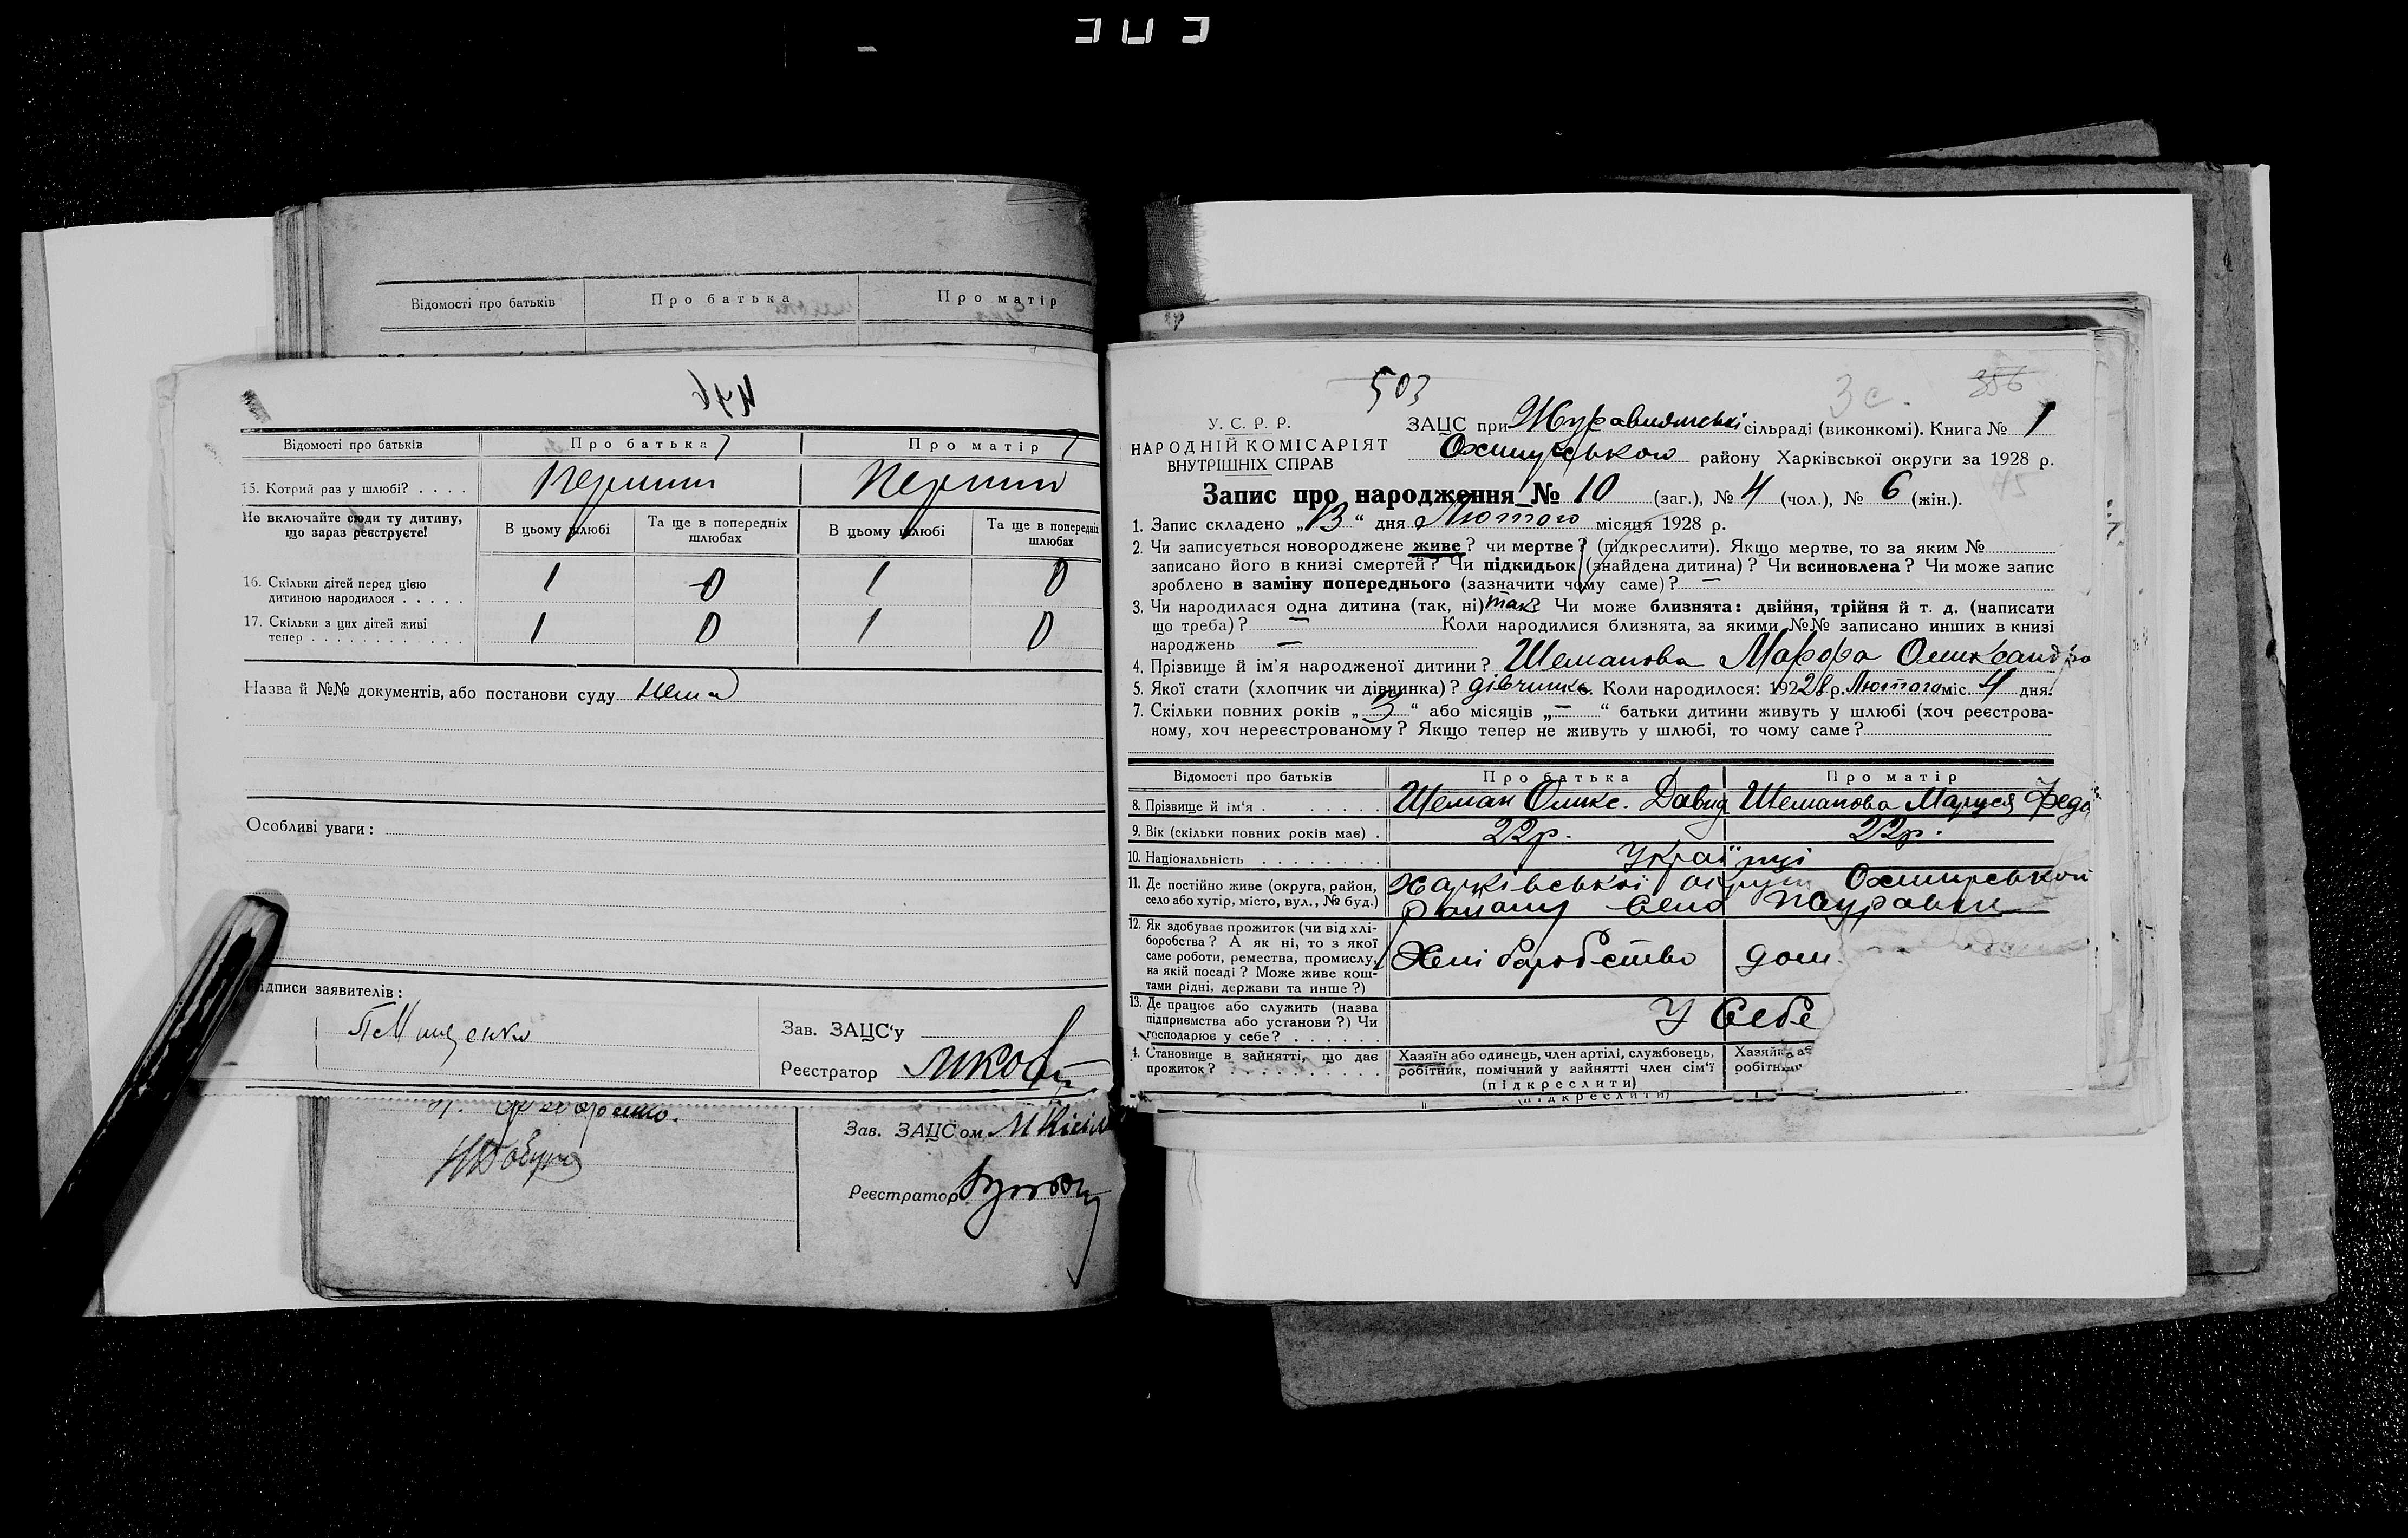 Відомості про батьків Про батька Про матір
Відомості про батьків Про батька Про матір
15. Котрий раз у шлюбі? . . . .
Не включайте сюди ту дитину, що зараз реєструєте!
В цьому шлюбі Та ще в попередніх шлюбах В цьому шлюбі Та ще в попередніх шлюбах
16. Скільки дітей перед цією
дитиною народилося . . . . . 1 0 1 0
17. Скільки з цих дітей живі
тепер . . . . . . . . . . . 1 0 1 0
Назва й №№ документів, або постанови суду нема
Особливі уваги:
ідписи заявителів:
Зав. ЗАЦС'у
Реєстратор
Зав. ЗАЦСом
Реєстратор
503
3с.
356
У. С. Р. Р.
НАРОДНІЙ КОМІСАРІЯТ
ВНУТРІШНІХ СПРАВ
ЗАЦС при сільраді (виконкомі). Книга № 1
району Харківської округи за 1928 р.
Запис про народження № 10 (заг.), № 4 (чол.), № 6 (жін.).
1. Запис складено „13“ дня Лютого місяця 1928 р.
2. Чи записується новороджене живе? чи мертве? (підкреслити). Якщо мертве, то за яким №
записано його в книзі смертей? Чи підкидьок (знайдена дитина)? Чи всиновлена? Чи може запис
зроблено в заміну попереднього (зазначити чому саме)? —
3. Чи народилася одна дитина (так, ні) так? Чи може близнята: двійня, трійня й т. д. (написати
що треба)? — Коли народилися близнята, за якими №№ записано инших в книзі
народжень —
4. Прізвище й ім'я народженої дитини? Шеманова
5. Якої стати (хлопчик чи дівчинка)? дівчинка. Коли народилося: 1928 р. Лютого міс. 4 дня.
7. Скільки повних років „3“ або місяців „—“ батьки дитини живуть у шлюбі (хоч реєстрова-
ному, хоч нереєстрованому? Якщо тепер не живуть у шлюбі, то чому саме?
Відомості про батьків Про батька Про матір
8. Прізвище й ім'я . . . . . . Шеман Оликс. Давид Шеманова Маруся Федо
9. Вік (скільки повних років має) . 22р. 22р.
10. Національність . . . . . . . . Українці
11. Де постійно живе (округа, район,
село або хутір, місто, вул., № буд.) Харківської округи
району село
12. Як здобуває прожиток (чи від хлі-
боробства? А як ні, то з якої
саме роботи, ремества, промислу,
на якій посаді? Може живе кош-
тами рідні, держави та инше?) Хліборобство дом.
13. Де працює або служить (назва
підприємства або установи?) Чи
господарює у себе? . . . . . . У себе
4. Становище в зайнятті, що дає
прожиток? . . . . . . . . . .
Хазяїн або одинець, член артілі, службовець,
робітник, помічний у зайнятті член сім'ї
(підкреслити)
(підкреслити)